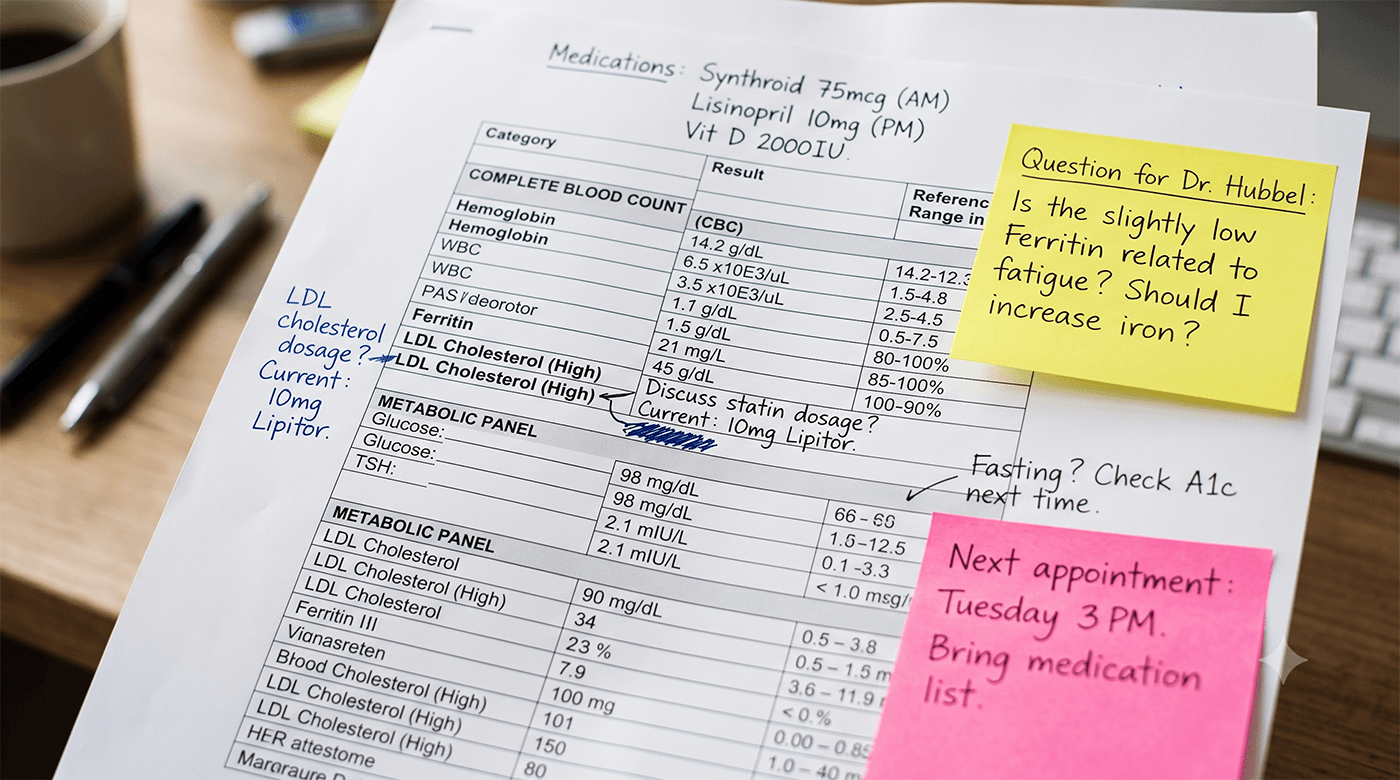 Medications: Synthroid 75mcg (AM)
Lisinopril 10mg (PM)
Vit D 2000IU.
Category Result Referenc
Range in
COMPLETE BLOOD COUNT (CBC)
Hemoglobin 14.2 g/dL 14.2-12.3
Hemoglobin 6.5 x10E3/uL 1.5-4.8
WBC 3.5 x10E3/uL 2.5-4.5
WBC 1.7 g/dL 0.5-7.5
PAS 1.5 g/dL 80-100%
Ferritin 21 mg/L 85-100%
LDL Cholesterol (High) 45 g/dL 100-90%
LDL Cholesterol (High)
Discuss statin dosage?
Current: 10mg Lipitor.
LDL
cholesterol
dosage?
Current:
10mg
Lipitor.
Question for Dr. Hubbel:
Is the slightly low
Ferritin related to
fatigue? Should I
increase iron?
METABOLIC PANEL
Glucose: 98 mg/dL 66-
Glucose: 98 mg/dL -12.5
TSH: 2.1 mIU/L 0.1-3.3
2.1 mIU/L < 1.0 msg/
Fasting? Check A1c
next time.
METABOLIC PANEL
LDL Cholesterol 90 mg/dL 0.5 – 3.8
LDL Cholesterol (High) 34 0.5 – 1.5 m
LDL Cholesterol 23 % 3.6 – 11.9
Ferritin III 7.9 < 0.%
Vignasreten 100 mg 0.00 – 0.85
Blood Cholesterol (High) 101 1.0 – 40 m
LDL Cholesterol (High) 150
LDL Cholesterol (High) 80
HER attestome
Next appointment:
Tuesday 3 PM.
Bring medication
list.